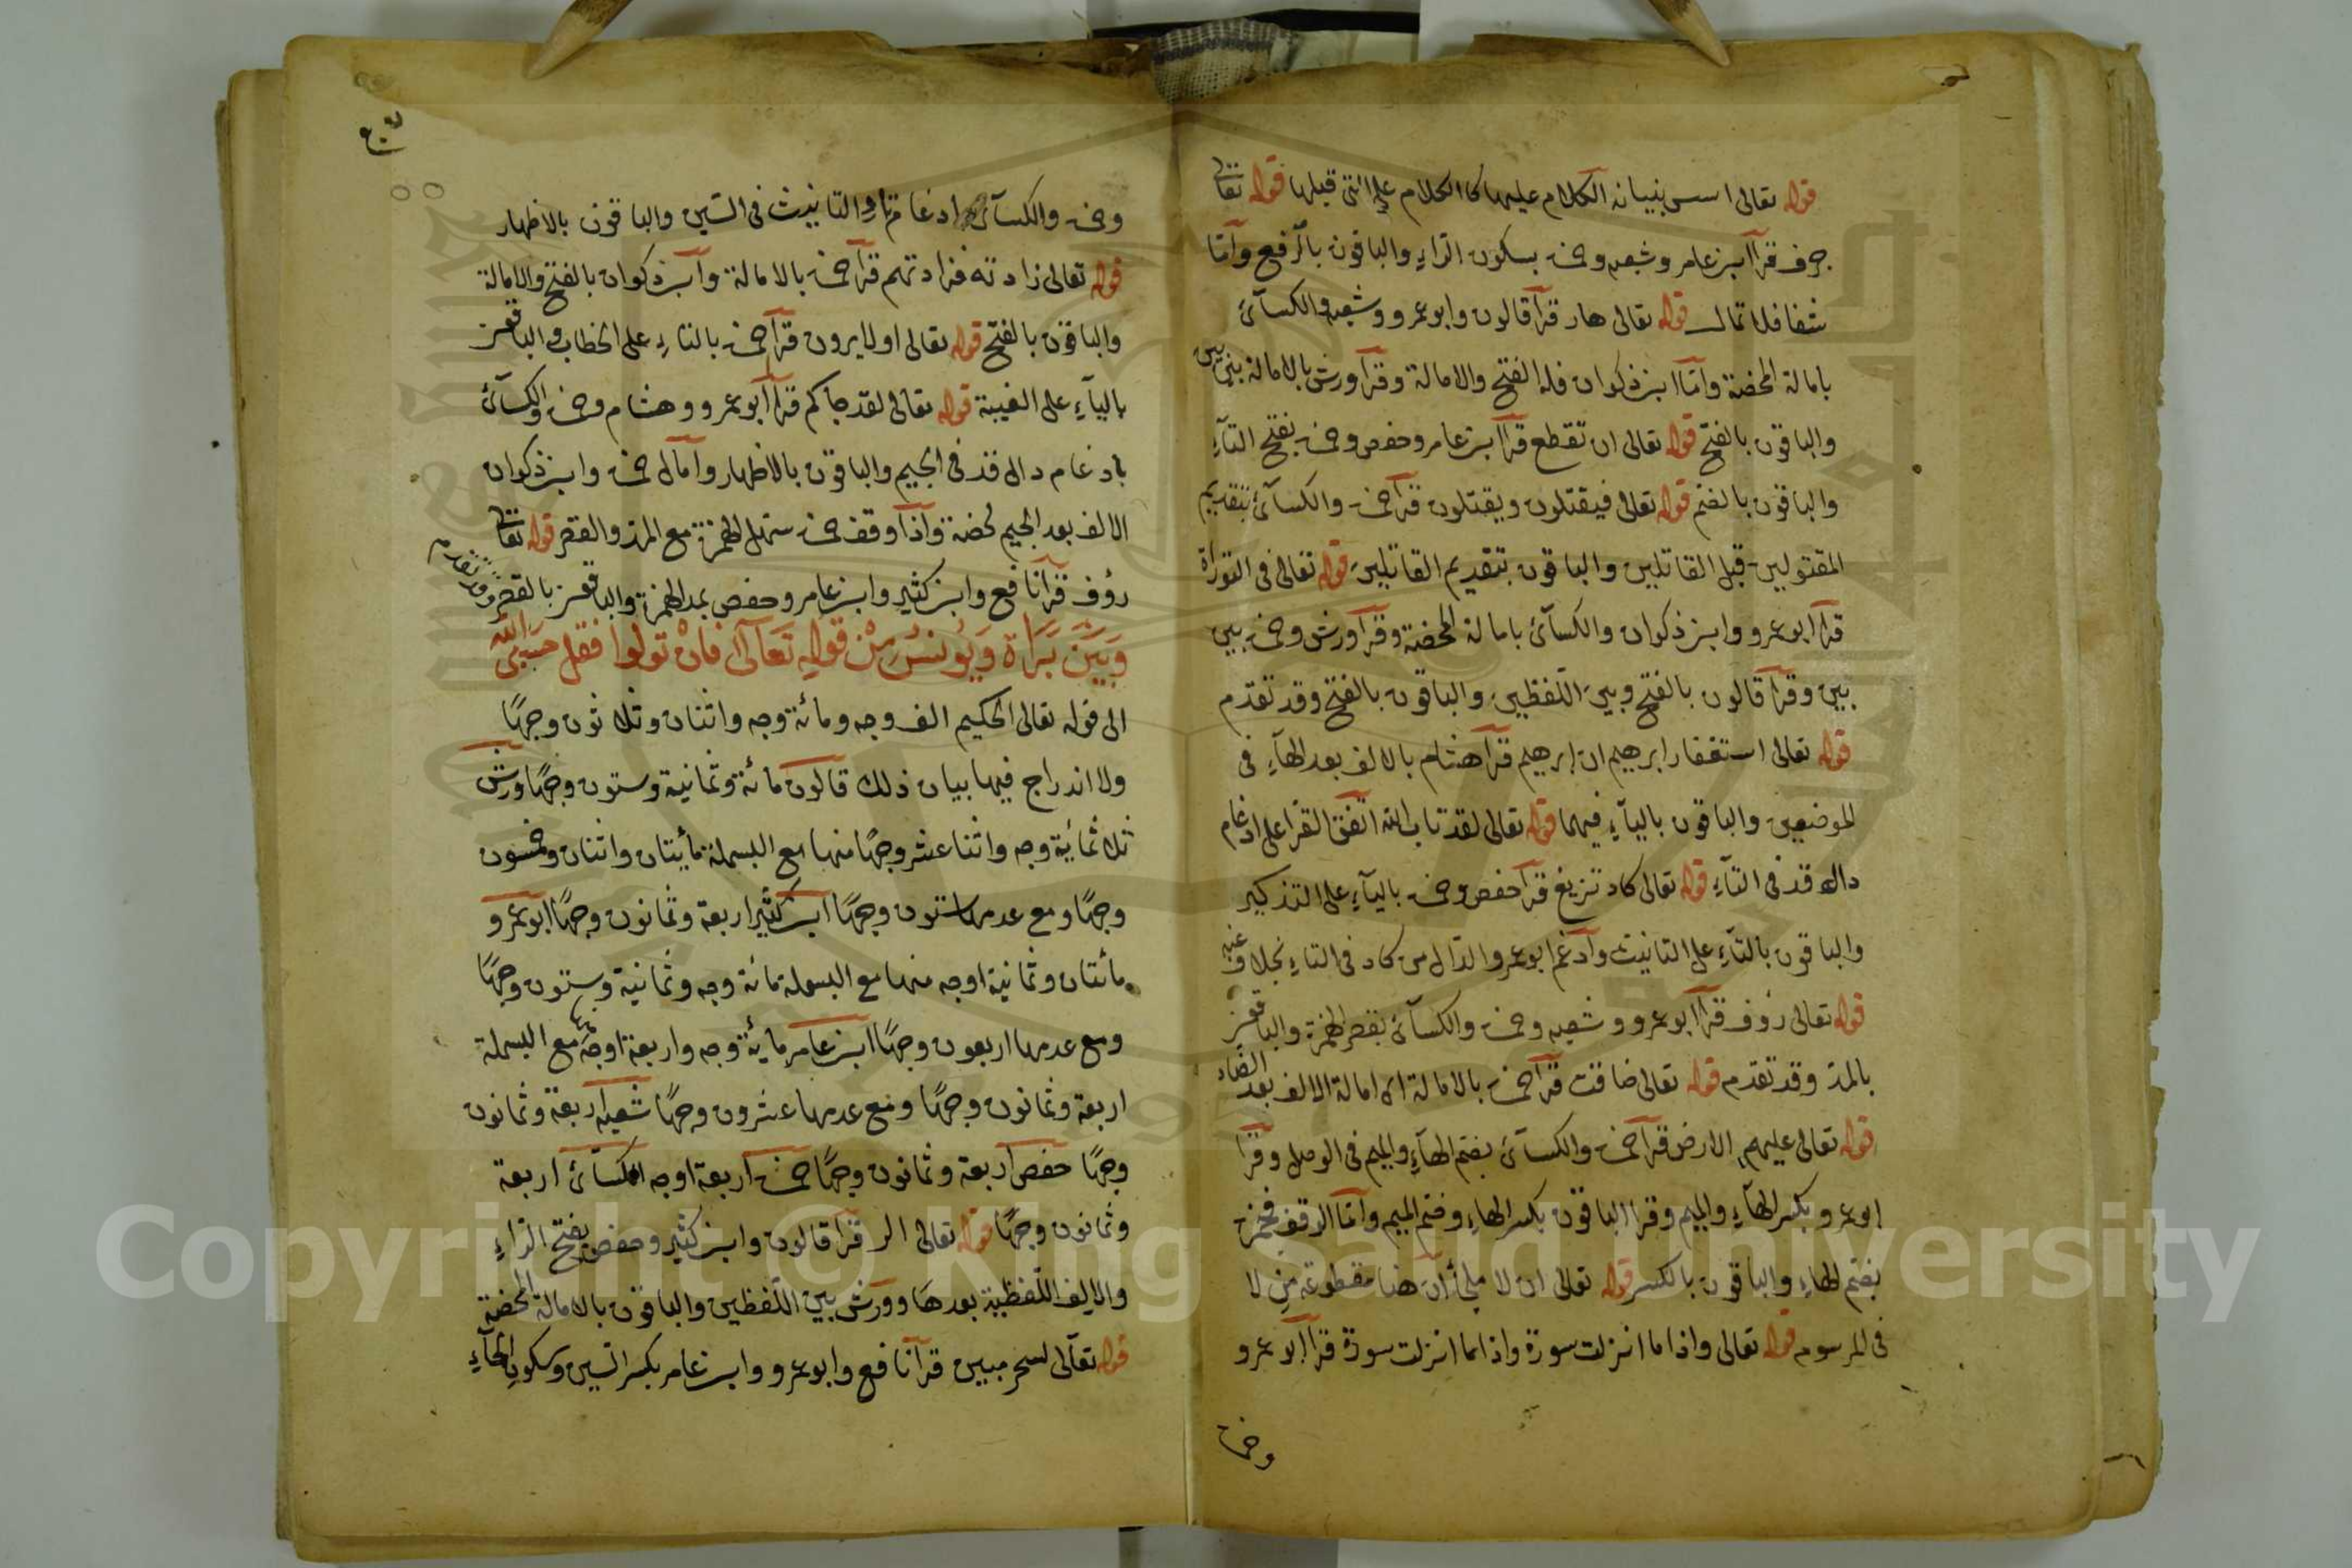 قوله تعالى اسس بنيانه الكلام عليها كالكلام على التي قبلها قوله تعالى
جرف قرأ ابن عامر وشعبه وحمزة بسكون الراء والباقون بالرفع وأما
شفا فلا تمال قوله تعالى هار قرأ قالون وابو عمرو وشعبه والكسائى
بامالة المحضة وأما ابن ذكوان فله الفتح والامالة وقرأ ورش بالامالة بين بين
والباقون بالفتح قوله تعالى ان تقطع قرأ ابن عامر وحفص وحمزة بفتح التآء
والباقون بالضم قوله تعالى فيقتلون ويقتلون قرأ حمزة والكسآئى بتقديم
المقتولين قبل القاتلين والباقون بتقديم القاتلين قوله تعالى فى التوراة
قرأ ابو عمرو وابن ذكوان والكسآئى بامالة المحضة وقرأ ورش وحمزة بين
بين وقرأ قالون بالفتح وبين اللفظين والباقون بالفتح وقد تقدم
قوله تعالى استغفار ابرهيم ان ابرهيم قرأ هشام بالالف بعد الهآء فى
الموضعين والباقون باليآء فيهما قوله تعالى لقد تاب الله اتفق القرا على ادغام
دال قد فى التآء قوله تعالى كاد تزيغ قرأ حفص وحمزة باليآء على التذكير
والباقون بالتآء على التانيث وأدغم ابو عمرو الدال من كاد فى التاء بخلاف عنه
قوله تعالى رؤف قرأ ابو عمرو وشعبه وحمزة والكسآئى بقصر الهمزة والباقون
بالمد وقد تقدم قوله تعالى ضاقت قرأ حمزة بالامالة اى امالة الالف بعد الضاد
قوله تعالى عليهم الارض قرأ حمزة والكسآئى بضم الهآء والميم فى الوصل وقرأ
ابو عمرو بكسر الهآء والميم وقرا الباقون بكسر الهاء وضم الميم وأما الوقف فحمزة
بضم الهاء والباقون بالكسر قوله تعالى ان لا ملجأ أن هنا مقطوعة من لا
فى المرسوم قوله تعالى واذا ما انزلت سورة واذا ما انزلت سورة قرأ ابو عمرو
وحمزة
وحمزة والكسآئى ادغام تاء التانيث فى السين والباقون بالاظهار
قوله تعالى زادته فزادتهم قرأ حمزة بالامالة وابن ذكوان بالفتح والامالة
والباقون بالفتح قوله تعالى اولا يرون قرأ حمزة بالتاء على الخطاب والباقون
باليآء على الغيبة قوله تعالى لقد جاكم قرأ أبو عمرو وهشام وحمزة والكسآئى
بادغام دال قد فى الجيم والباقون بالاظهار وأمال حمزة وابن ذكوان
الالف بعد الجيم محضة واذا وقف حمزة سهل الهمزة مع المد والقصر قوله تعالى
رؤف قرأ نافع وابن كثير وابن عامر وحفص بمد الهمزة والباقون بالقصر وقد تقدم
وَبَيْنَ بَرَاة وَيُونُسْ مِنْ قوله تَعَالى فَانْ تولوا فقل حَسْبِىَ اللّه
الى قوله تعالى الحكيم الف وجه ومائة وجه واثنان وثلاثون وجهًا
ولا اندراج فيها بيان ذلك قالون مائة وثمانية وستون وجهًا ورش
ثلاثمائة وجه واثنا عشر وجهًا منها مع البسملة مأيتان واثنان وخمسون
وجهًا ومع عدمها ستون وجهًا ابن كثير اربعة وثمانون وجهًا ابو عمرو
مائتان وثمانية اوجه منها مع البسملة مائة وجه وثمانية وستون وجهًا
ومع عدمها اربعون وجهًا ابن عامر مائة وجه واربعة اوجه مع البسملة
اربعة وثمانون وجهًا ومع عدمها عشرون وجهًا شعبه اربعة وثمانون
وجهًا حفص اربعة وثمانون وجهًا حمزة اربعة اوجه الكسائى اربعة
وثمانون وجهًا قوله تعالى الر قرأ قالون وابن كثير وحفص بفتح الراء
والالف اللفظية بعدها وورش بين اللفظين والباقون بالامالة المحضة
قوله تعالى لسحر مبين قرأ نافع وابو عمرو وابن عامر بكسر السين وسكون الحآء
Copyright © King Saud University